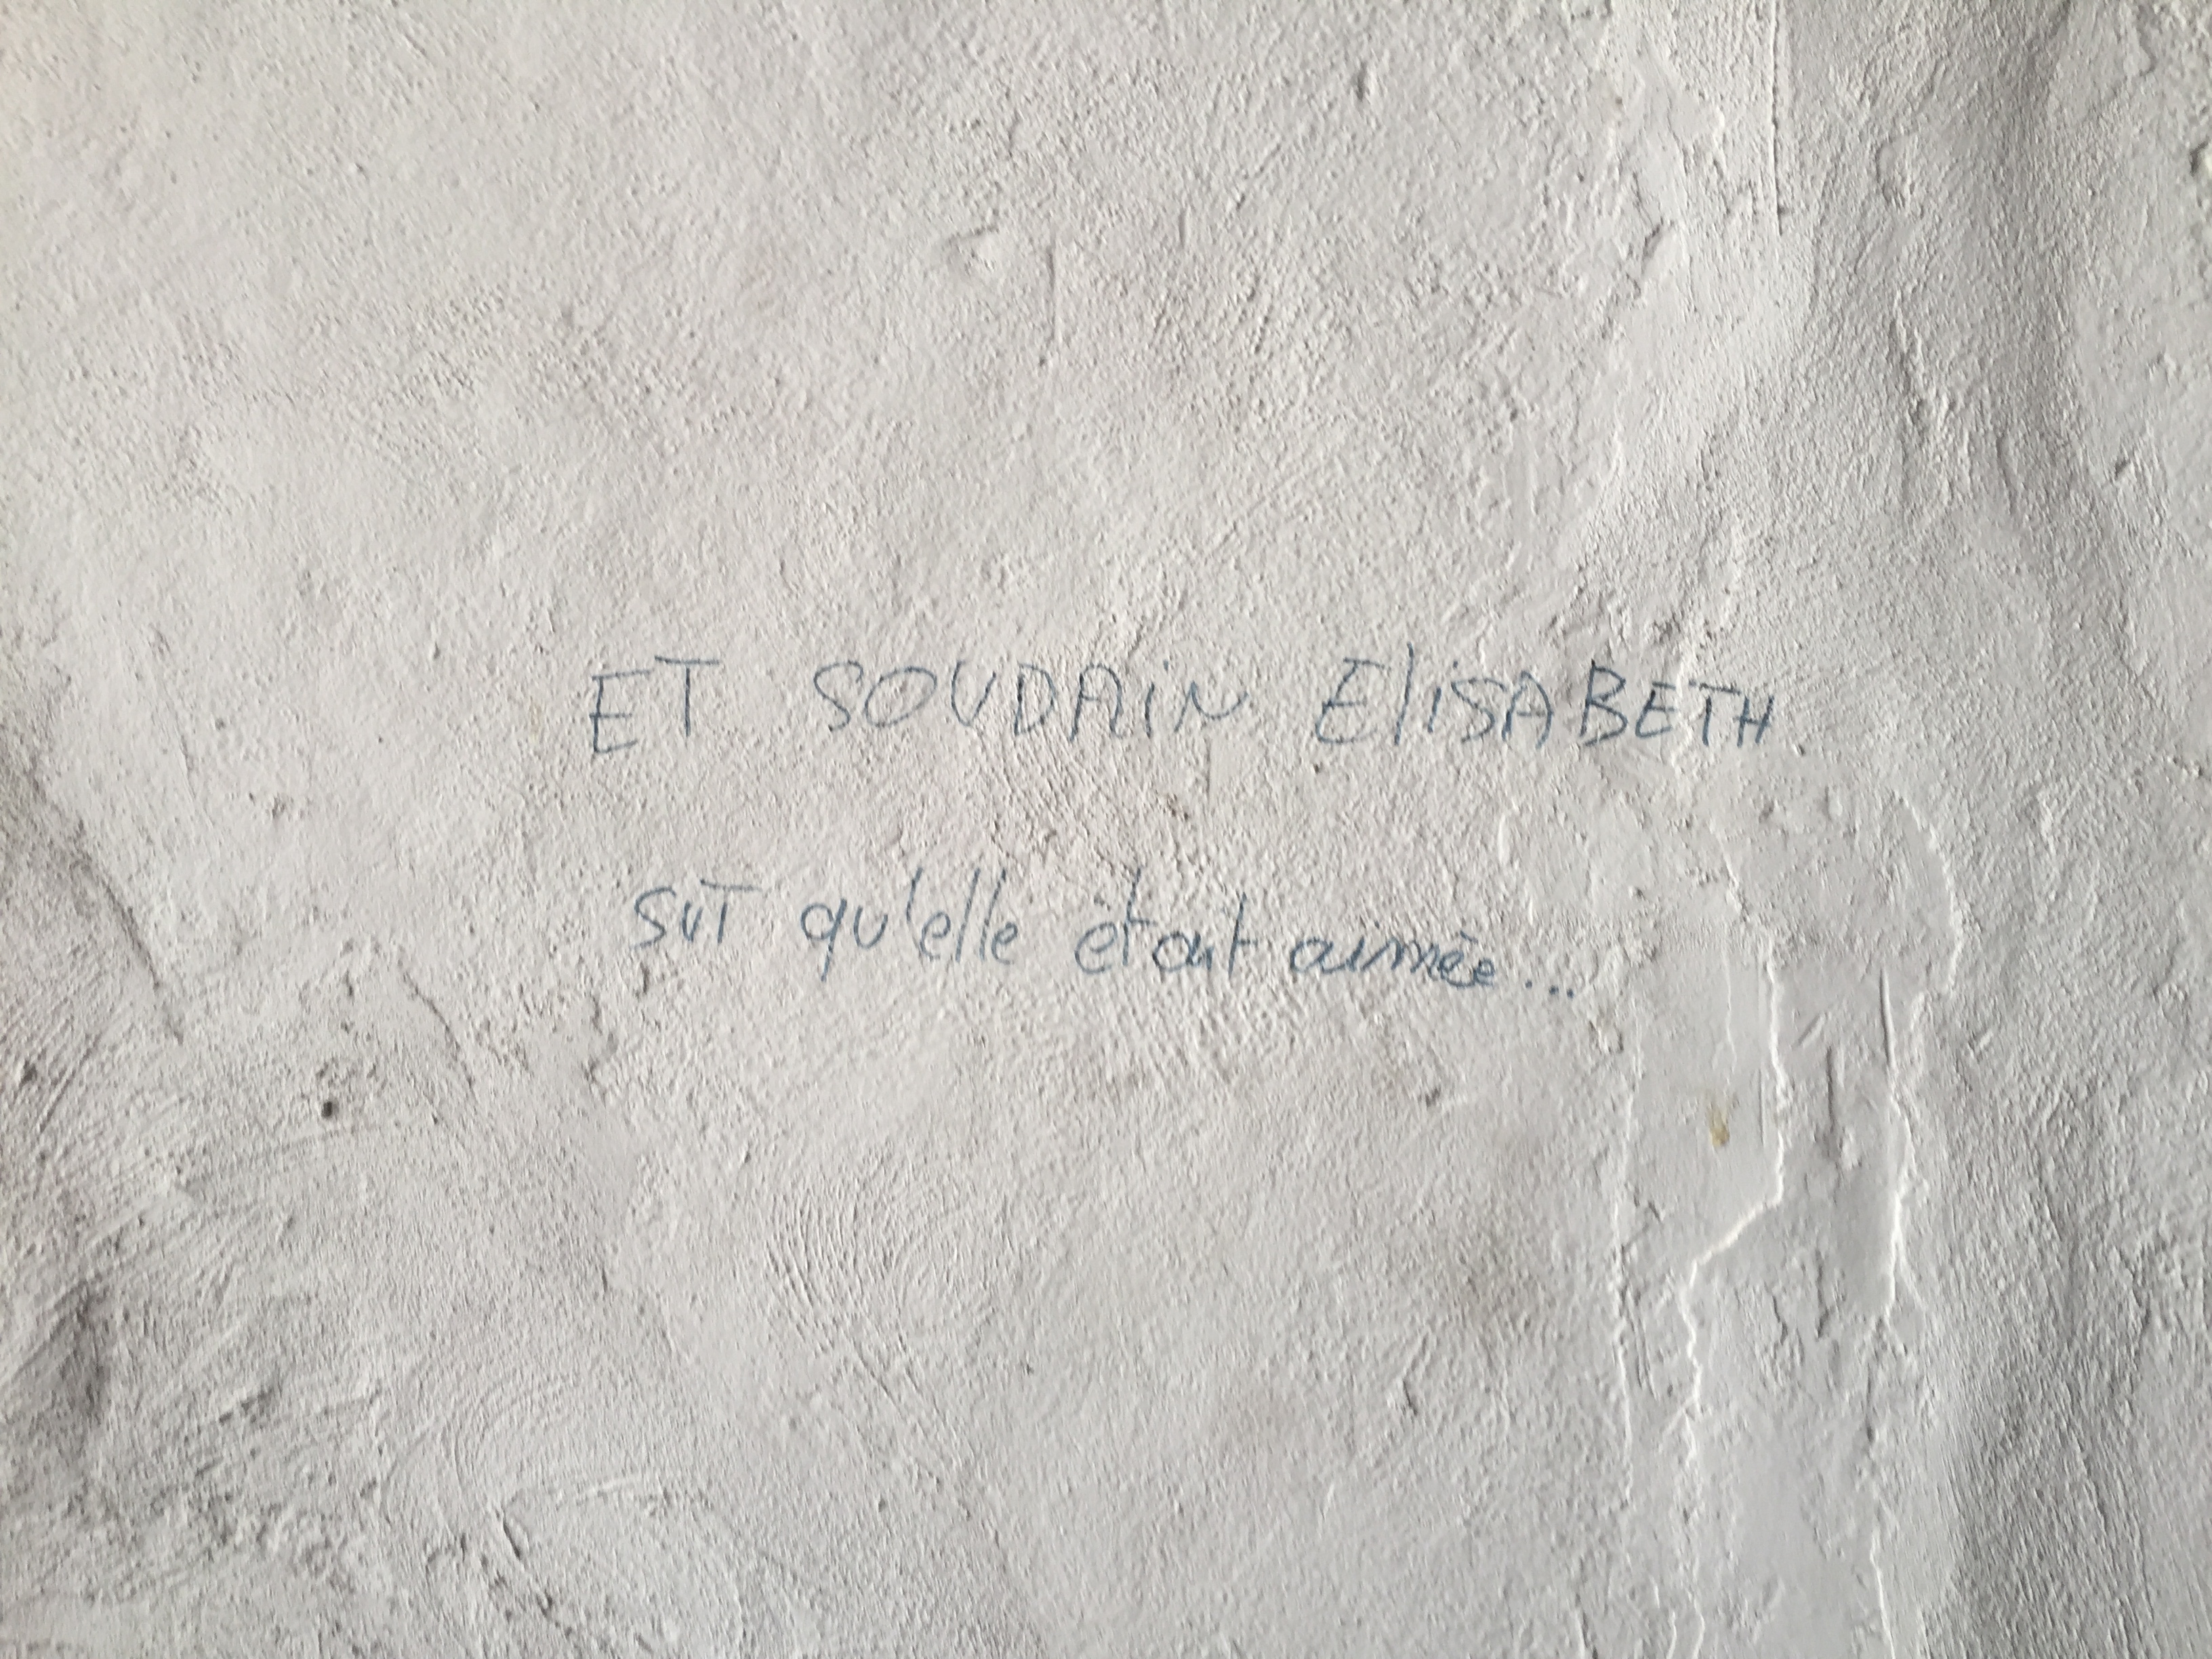 ET SOUDAIN ElISABETH
sut qu'elle etait aimée...